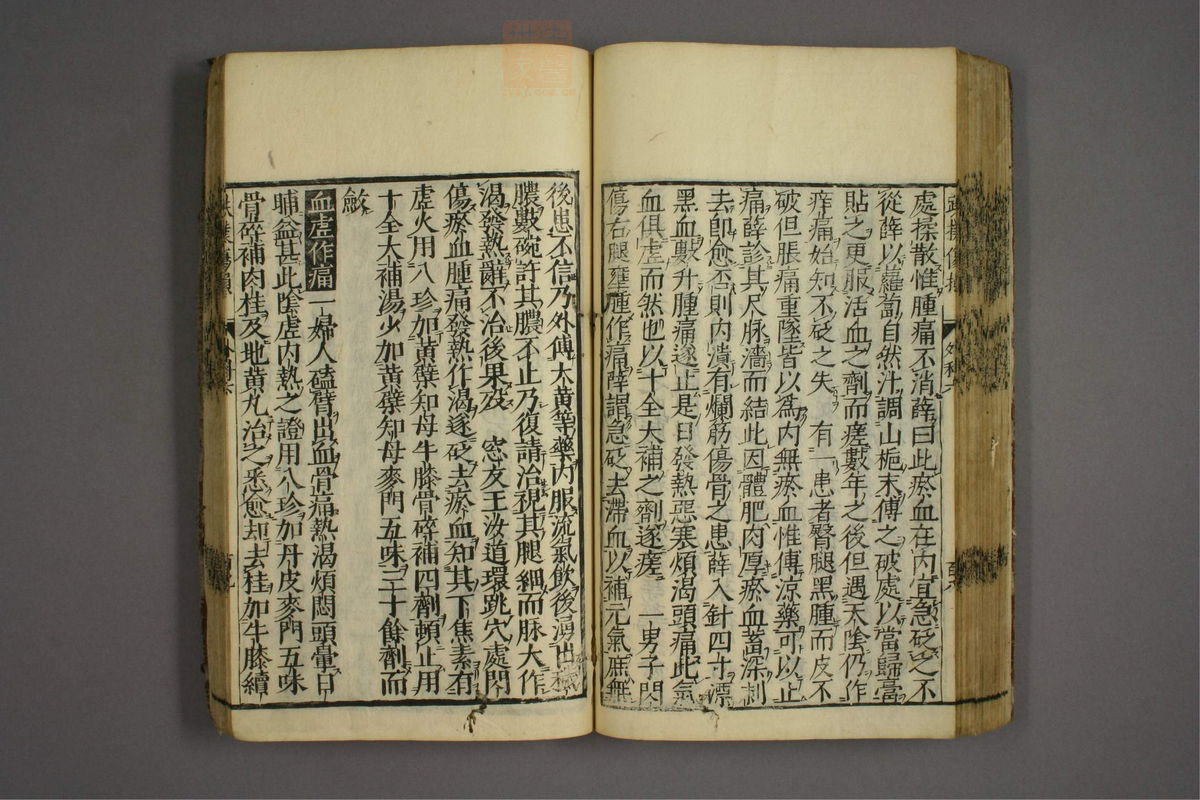 處摻散惟腫痛不消薛曰此瘀血在内宜急砭之不
從薛以蘿蔔自然汁調山梔末傅之破處以當歸膏
貼之更服活血之劑而瘥數年之後但遇天陰仍作
痒痛始知不砭之失 有一患者臀腿黑腫而皮不
破但脹痛重墜皆以爲内無瘀血惟傅涼藥可以止
痛薛診其尺脉濇而結此因體肥肉厚瘀血蓄深刺
去即愈否則内潰有爛筋傷骨之患薛入針四寸漂
黑血數升腫痛遂止是日發熱惡寒煩渴頭痛此氣
血俱虚而然也以十全大補之劑遂瘥 一男子閃
傷右腿壅腫作痛薛謂急砭去滯血以補元氣庶無
後患不信乃外傅大黄等藥内服流氣飲後涌出
膿數碗許其膿不止乃復請治視其腿細而脉大作
渴發熱辭不治後果殁 窓友王汝道環跳穴處閃
傷瘀血腫痛發熱作渴遂砭去瘀血知其下焦素有
虚火用八珍加黄蘗知母牛膝骨碎補四劑頓止用
十全大補湯少加黄蘗知母麥門五味三十餘劑而
斂
血虚作痛 一婦人磕臂出血骨痛熱渴煩悶頭暈日
晡益甚此陰虚内熱之證用八珍加丹皮麥門五味
骨碎補肉桂及地黄丸治之悉愈却去桂加牛膝續